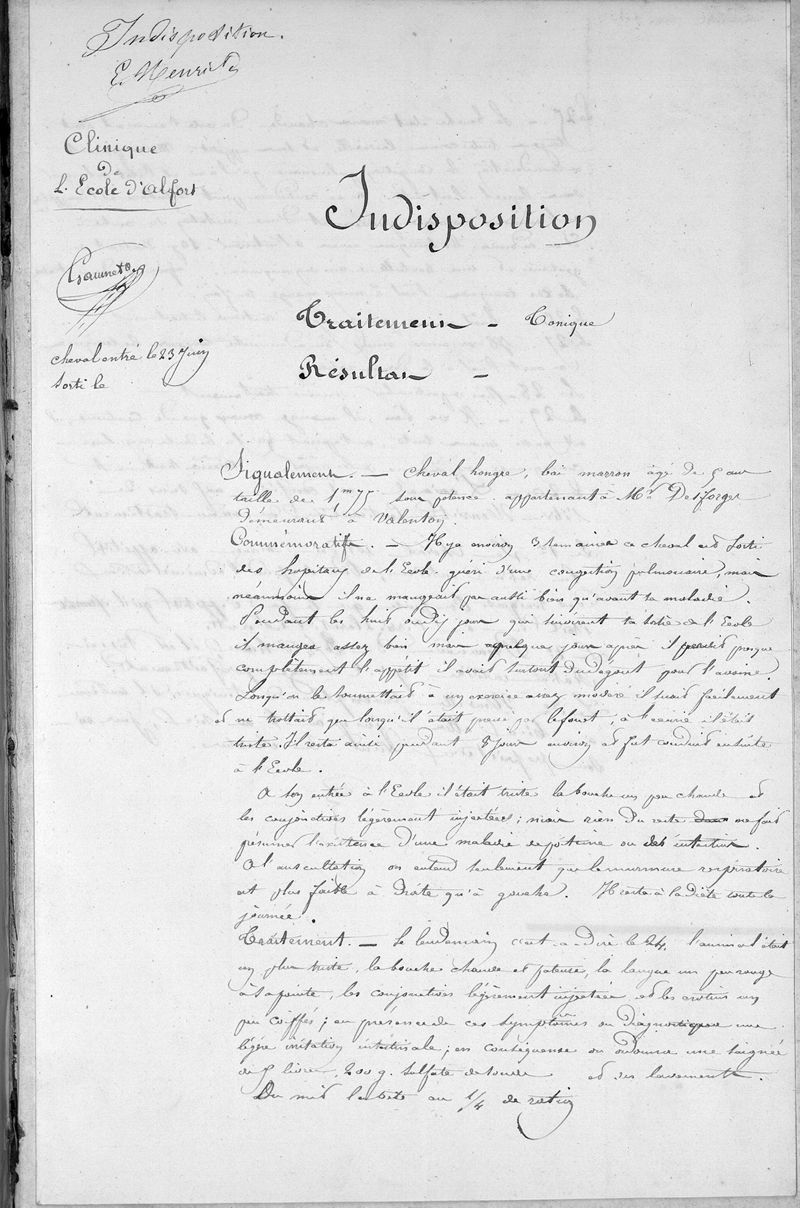 Indisposition.
E. Menri
Clinique
de
L. Ecole d'Alfort
Indisposition
Traitement - Tonique
cheval entré le 23 Juin
sorti le
Résultat -
Signalement. — Cheval hongre, bai marron âgé de 5 ans
taille de 1m75 sous potence. appartenant à Mr Desforges
demeurant à Valenton.
Commémoratifs. — Il y a environ 3 semaines ce cheval est sorti
des hopitaux de l'Ecole guéri d'une congestion pulmonaire, mais
néanmoins il ne mangeait pas aussi bien qu'avant sa maladie.
Pendant les huit ou dix jours qui suivirent sa sortie de l'Ecole
il mangea assez bien mais quelques jours après il perdit presque
complètement l'appétit il avait surtout du dégout pour l'avoine.
Lorsqu'on le soumettait à un exercice assez modéré il suait facilement
et ne trottait que lorsqu'il était pressé par le fouet, à l'écurie il était
triste. Il resta ainsi pendant 8 jours environ et fut conduit ensuite
à l'Ecole.
A son entrée à l'Ecole il était triste la bouche un peu chaude et
les conjonctives légèrement injectées; mais rien du reste ne fait
présumer l'existence d'une maladie de poitrine ou des intestins.
A l'auscultation on entend seulement que le murmure respiratoire
est plus faible à droite qu'à gauche. Il reste à la diète toute la
journée.
Traitement. — Le lendemain c'est-a-dire le 24. l'animal était
un plus triste, la bouche chaude et pateuse, la langue un peu rouge
à sa pointe, les conjonctives légèrement injectées et les crotins un
peu coiffés; en présence de ces symptômes on diagnostique une
légère irritation intestinale; en conséquence on ordonne une saignée
de 5 livres, 200 g. sulfate de soude et des lavements.
On mit la bête au 1/4 de ration